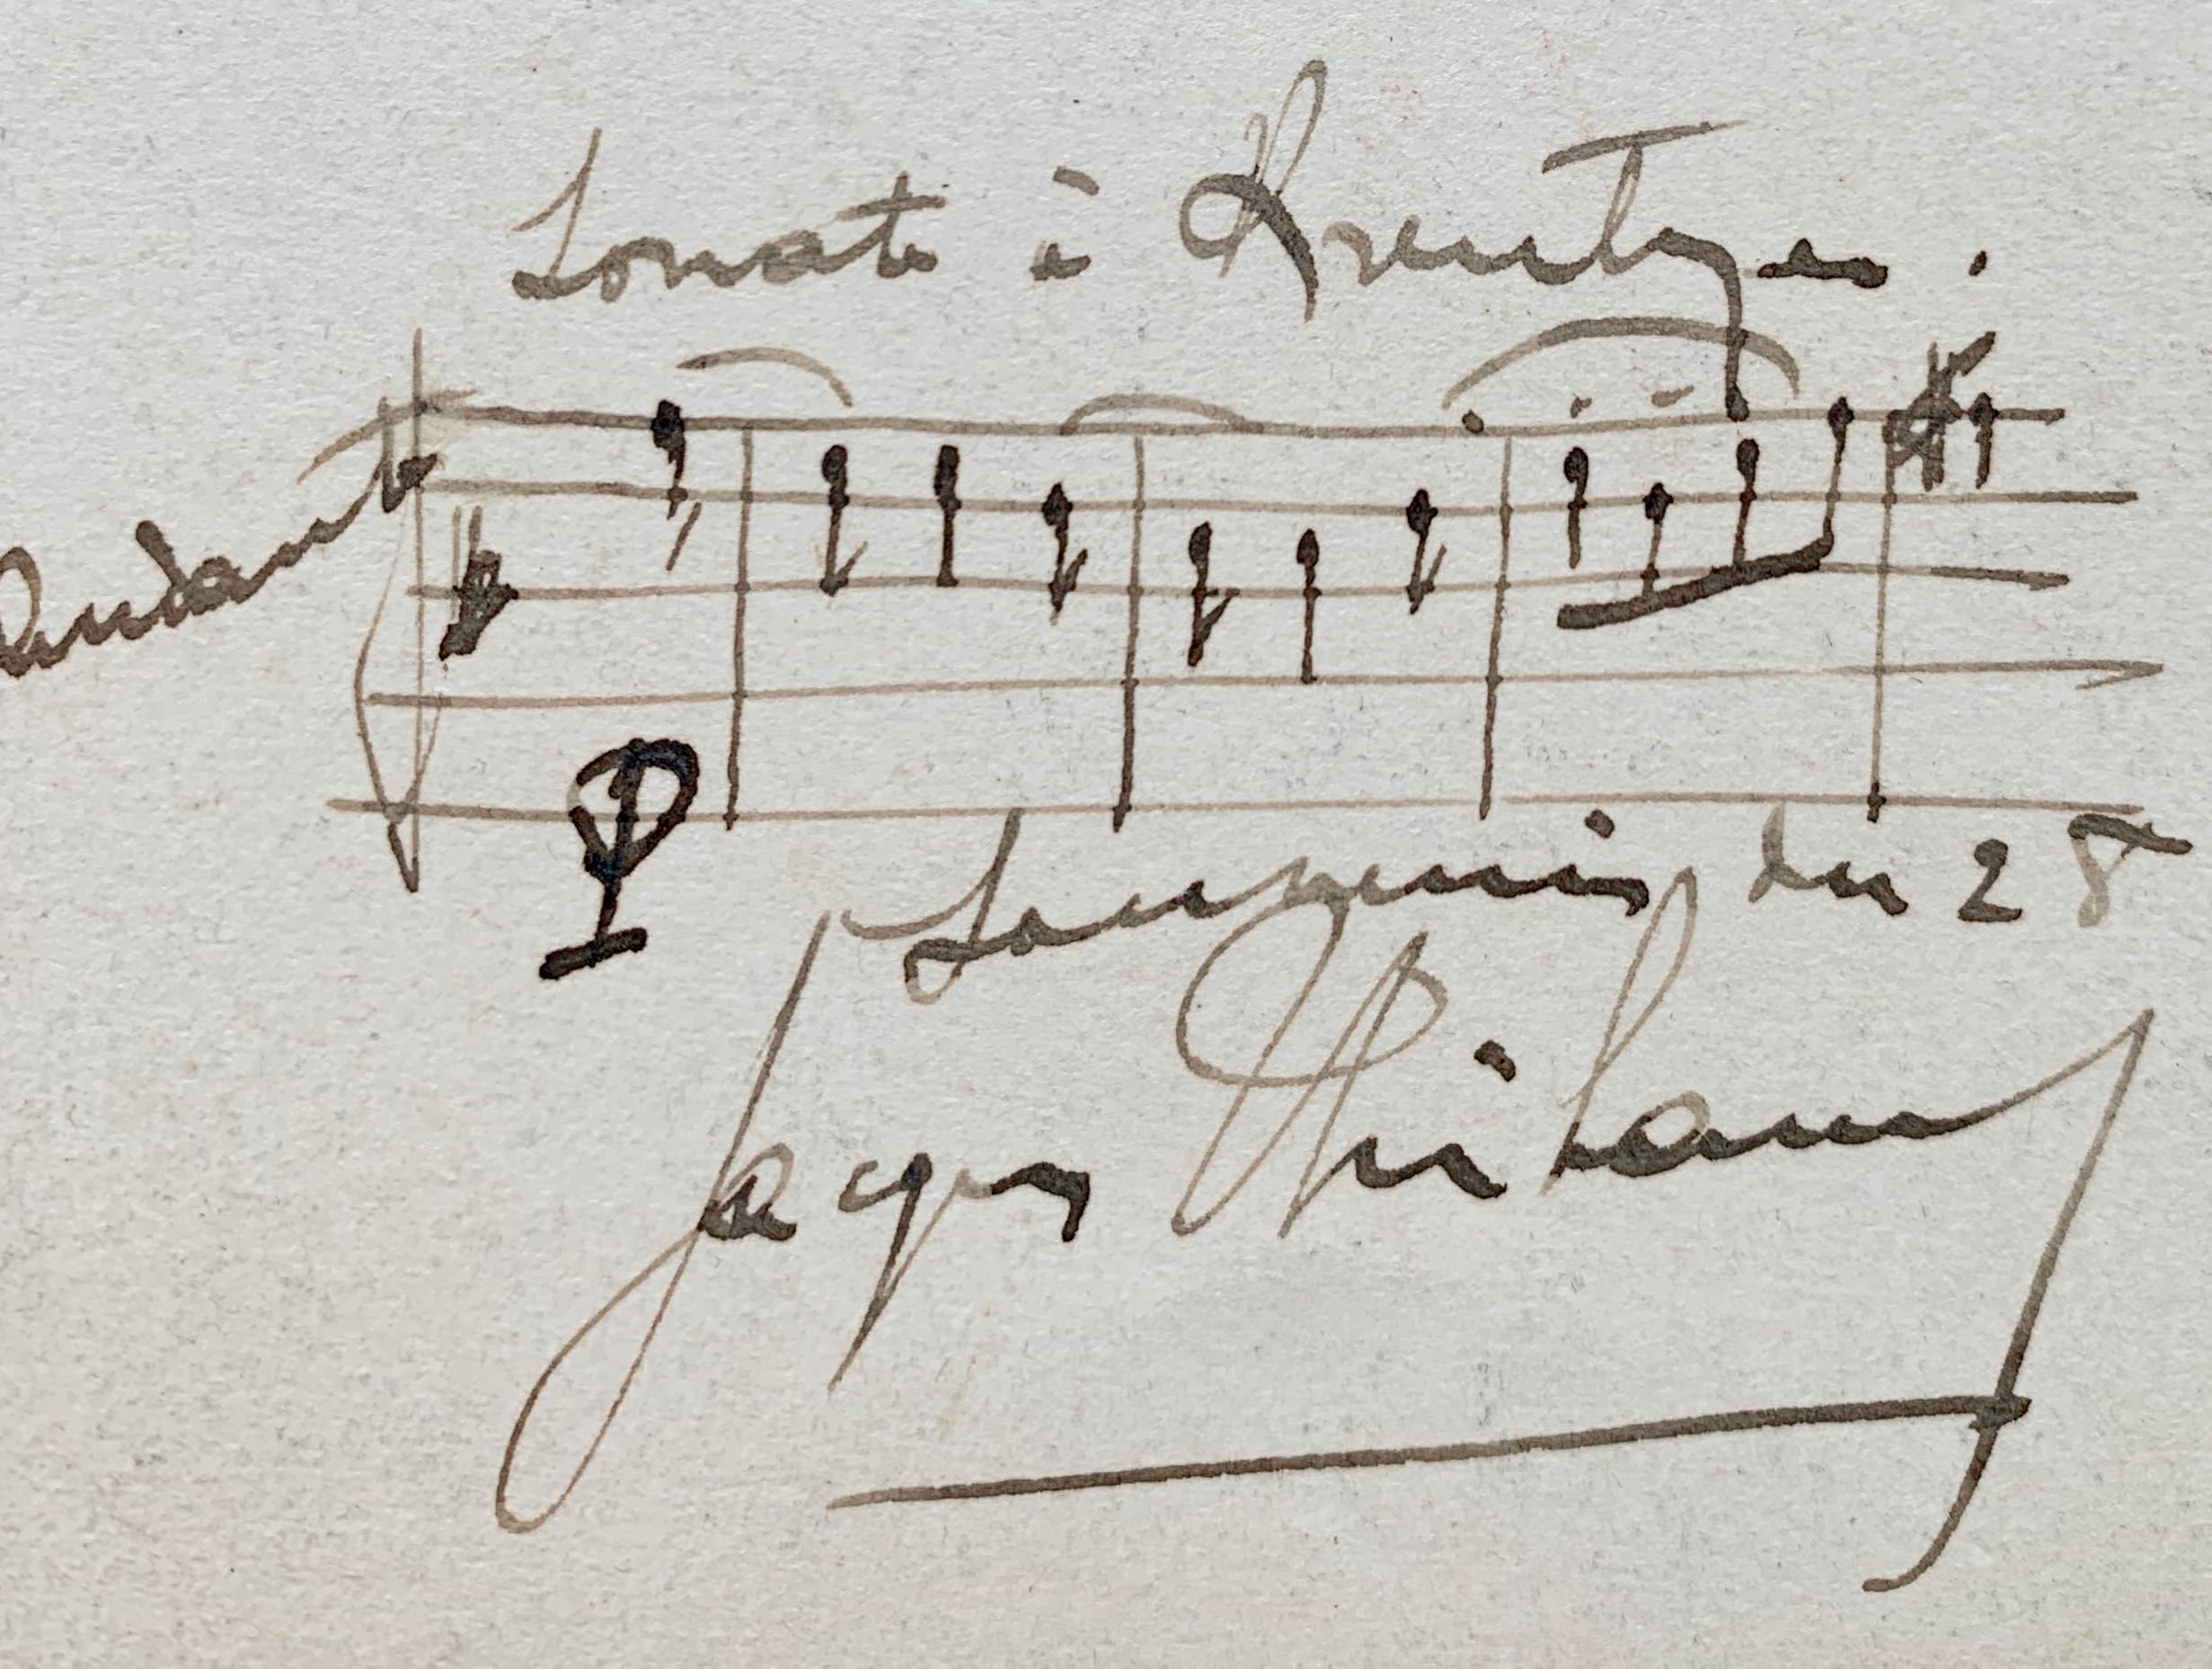 Sonate à Kreutzer.
Andante
P
Souvenir du 28
Jacques Thibaud